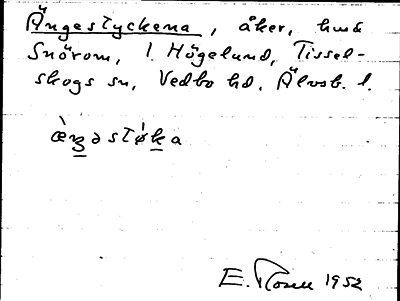 Ängestyckena, åker, hmd
Snörom, l Högelund, Tissel-
skogs sn, Vedbo hd, Älvsb. l.
æ̀ŋəstø̍ka
E. Rosell 1952